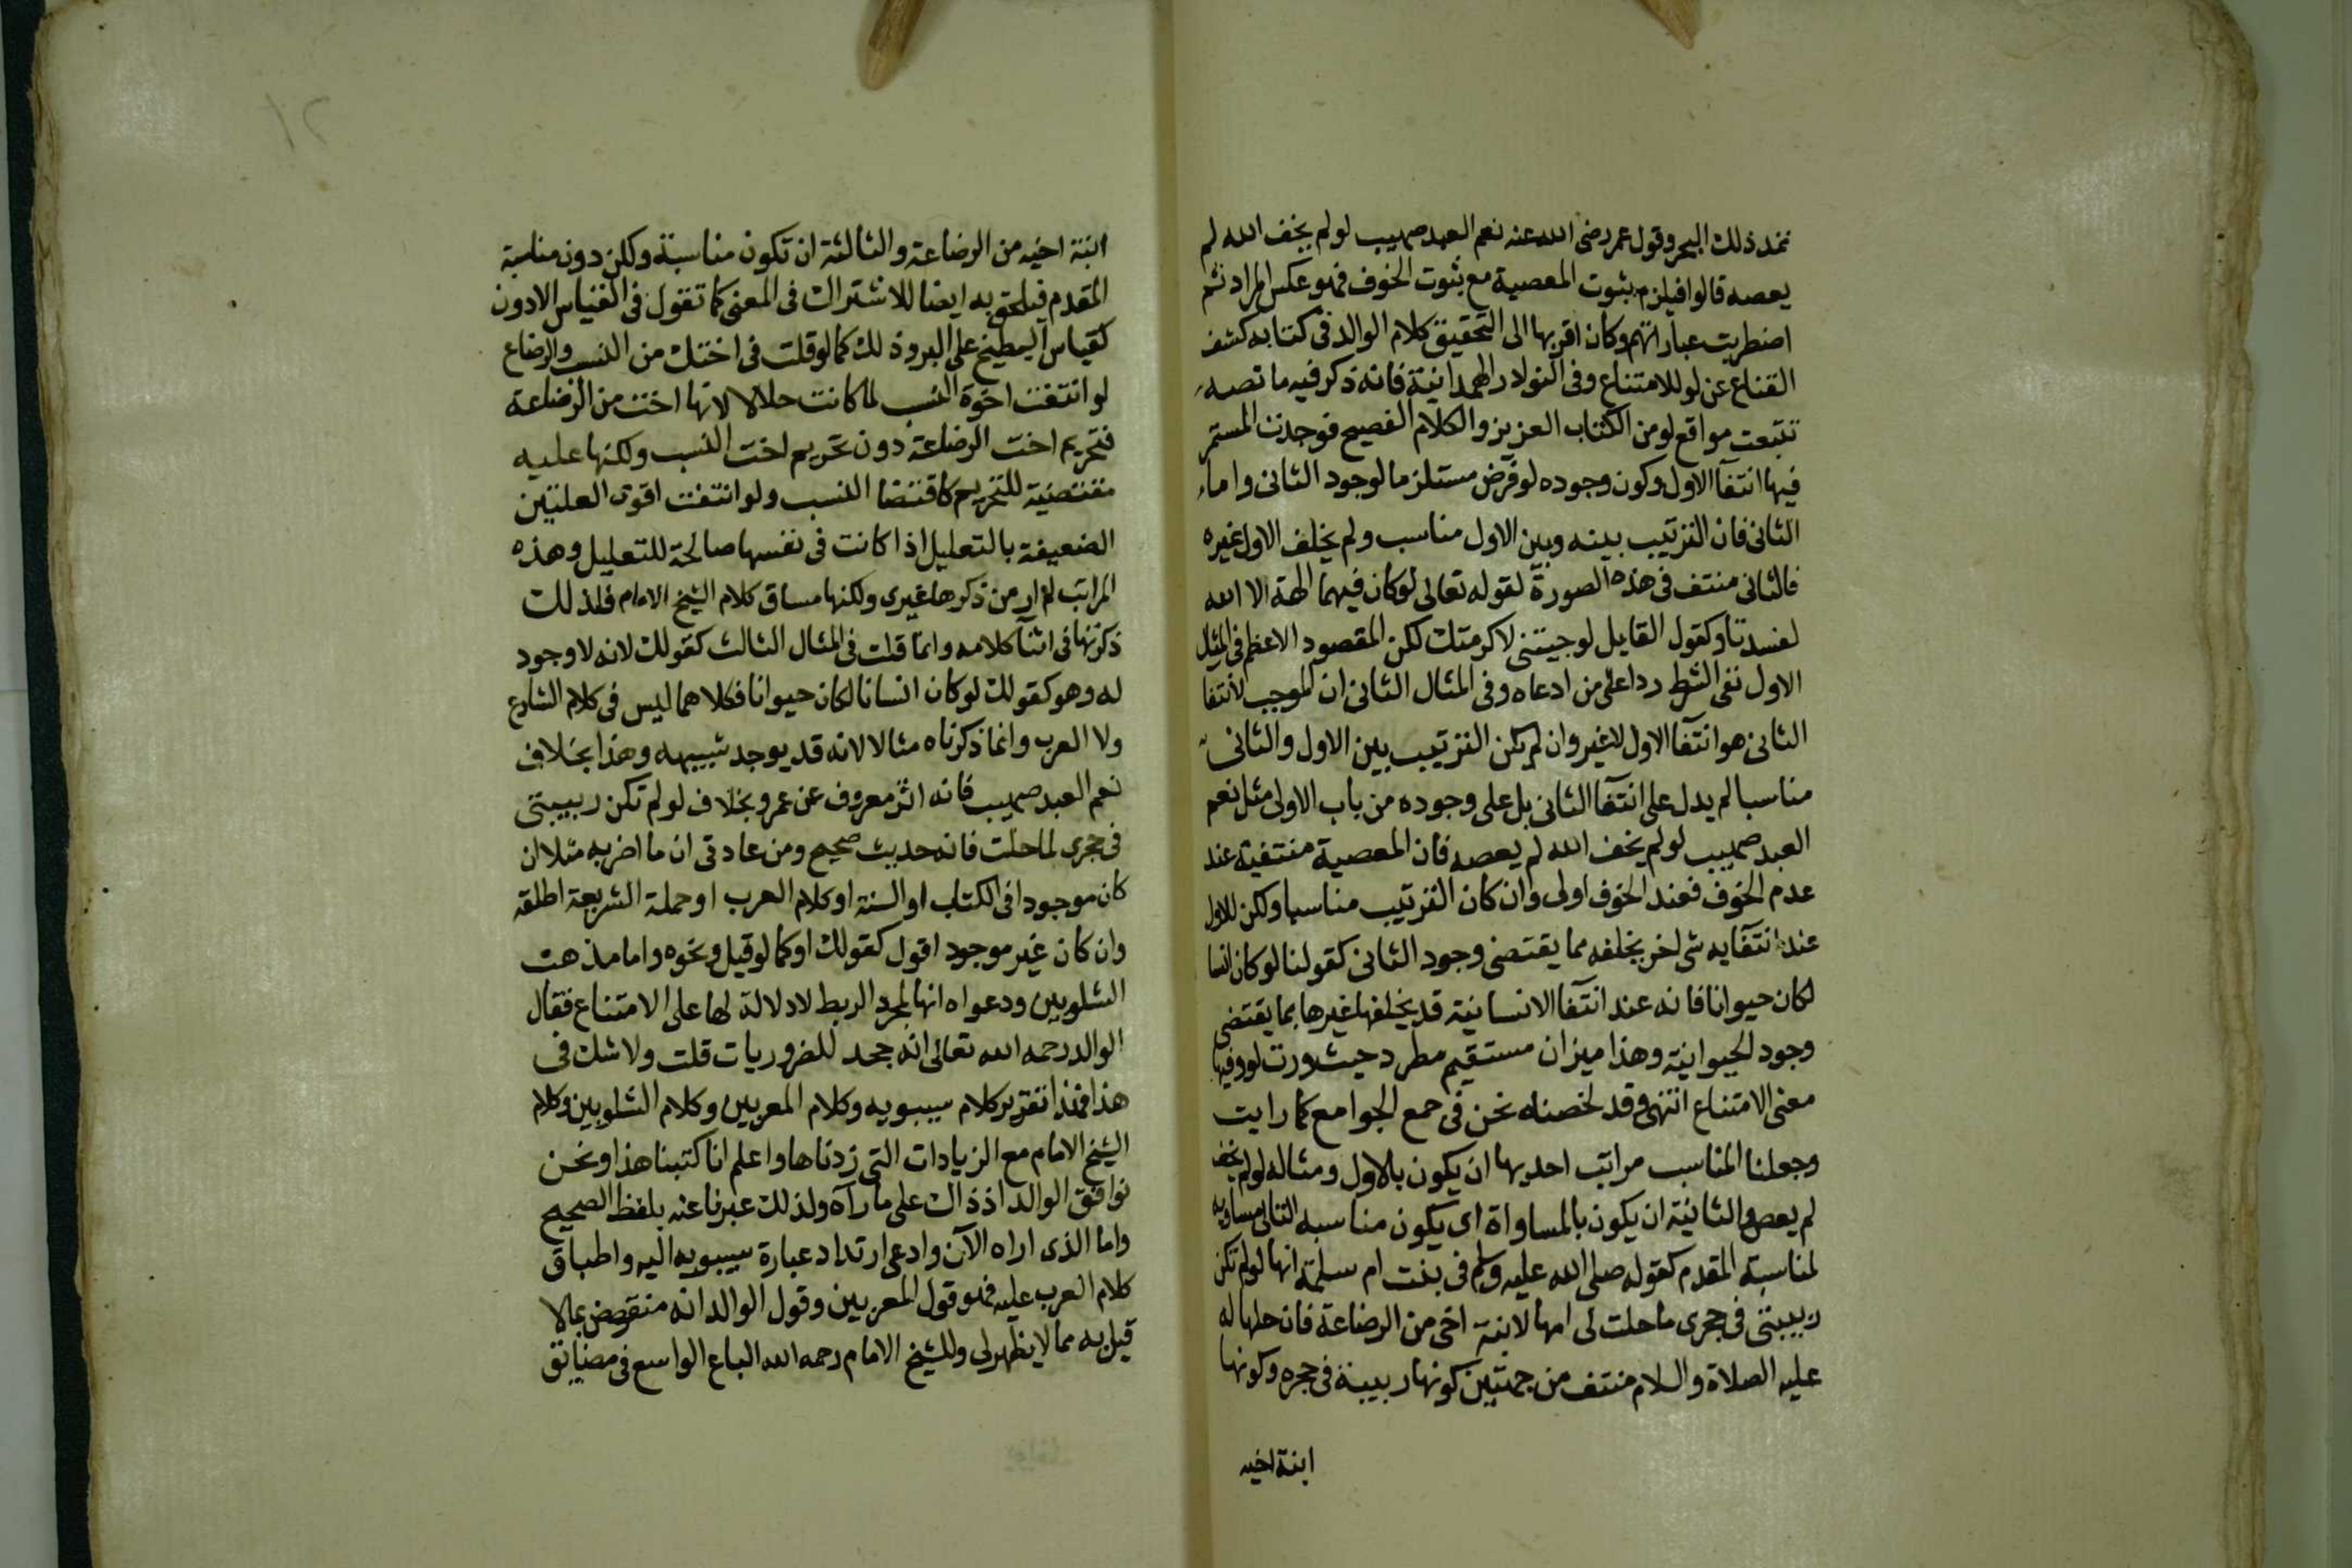 نمد ذلك البحر وقول عمر رضى الله عنه نعم العبد صهيب لو لم يخف الله لم
يعصه قالوا فيلزم ثبوت المعصية مع ثبوت الخوف فهو عكس المراد ثم
اضطربت عباراتهم وكان اقربها الى التحقيق كلام الوالد فى كتابه كشف
القناع عن لو للامتناع وفى النوادر الهمدانية فانه ذكر فيه ما نصه
تتبعت مواقع لو من الكتاب العزيز والكلام الفصيح فوجدت المستمر
فيها انتفآ الاول وكون وجوده لو فرض مستلزما لوجود الثانى واما
الثانى فان الترتيب بينه وبين الاول مناسب ولم يخلف الاول غيره
فالثانى منتف فى هذه الصورة لقوله تعالى لو كان فيهما الهة الا الله
لفسدتا وكقول القايل لو جيتنى لاكرمتك لكن المقصود الاعظم فى المثيل
الاول نفى الشرط ردا على من ادعاه وفى المثال الثانى ان الموجب لانتفا
الثانى هو انتفآ الاول لا غير وان لم يكن الترتيب بين الاول والثانى
مناسبا لم يدل على انتفآ الثانى بل على وجوده من باب الاولى مثل نعم
العبد صهيب لو لم يخف الله لم يعصه فان المعصية منتفية عند
عدم الخوف فعند الخوف اولى وان كان الترتيب مناسبا ولكن للاول
عند انتفآيه شى اخر يخلفه مما يقتضى وجود الثانى كقولنا لو كان انسا
لكان حيوانا فانه عند انتفآ الانسانية قد يخلفها غيرها بما يقتضى
وجود الحيوانية وهذا ميزان مستقيم مطرد حيث وردت لو وفيها
معنى الامتناع انتهى وقد لخصناه نحن فى جمع الجوامع كما رايت
وجعلنا المناسب مراتب احديها ان يكون بالاول ومثاله لو لم يخف
لم يعص والثانية ان يكون بالمساواة اى يكون مناسبه الثانى مساويه
لمناسبة المقدم كقوله صلى الله عليه وسلم فى بنت ام سلمة انها لو لم تكن
ربيبتى فى حجرى ما حلت لى انها لابنة اخى من الرضاعة فان حلها له
عليه الصلاة والسلام منتف من جهتين كونها ربيبة فى حجره وكونها
ابنة اخيه
ابنة اخيه من الرضاعة والثالثة ان تكون مناسبة ولكن دون مناسبة
المقدم فيلحق به ايضا للاشتراك فى المعنى كما تقول فى القياس الادون
كقياس البطيخ على البر وذلك كما لو قلت فى اختك من النسب والرضاع
لو انتفت اخوة النسب لما كانت حلالا لانها اخت من الرضاعة
فتحريم اخت الرضاعة دون تحريم اخت النسب ولكنها عليه
مقتضية للتحريم كاقتضا النسب ولو انتفت اقوى العلتين
الضعيفة بالتعليل اذا كانت فى نفسها صالحة للتعليل وهذه
المراتب لم ار من ذكرها غيرى ولكنها مساق كلام الشيخ الامام فلذلك
ذكرتها فى اثنآ كلامه وانما قلت فى المثال الثالث كقولك لانه لا وجود
له وهو كقولك لو كان انسانا لكان حيوانا فكلاهما ليس فى كلام الشارع
ولا العرب وانما ذكرناه مثالا لانه قد يوجد شبيهه وهذا بخلاف
نعم العبد صهيب فانه اثر معروف عن عمر وبخلاف لو لم تكن ربيبتى
فى حجرى لما حلت فانه حديث صحيح ومن عادتى ان ما اضربه مثلا ان
كان موجودا فى الكتاب او السنة او كلام العرب او حملة الشريعة اطلقه
وان كان غير موجود اقول كقولك او كما لو قيل ونحوه واما مذهب
الشلوبين ودعواه انها لمجرد الربط لا دلالة لها على الامتناع فقال
الوالد رحمه الله تعالى انه جحد للضروريات قلت ولا شك فى
هذا فهذا تقرير كلام سيبويه وكلام المعربين وكلام الشلوبين وكلام
الشيخ الامام مع الزيادات التى زدناها واعلم انا كتبنا هذا ونحن
نوافق الوالد اذ ذاك على ما رآه ولذلك عبرنا عنه بلفظ الصحيح
واما الذى اراه الآن وادعى ارتداد عبارة سيبويه اليه واطباق
كلام العرب عليه فهو قول المعربين وقول الوالد انه منقوض بما لا
قيل به مما لا يظهر لى وللشيخ الامام رحمه الله الباع الواسع فى مضايق